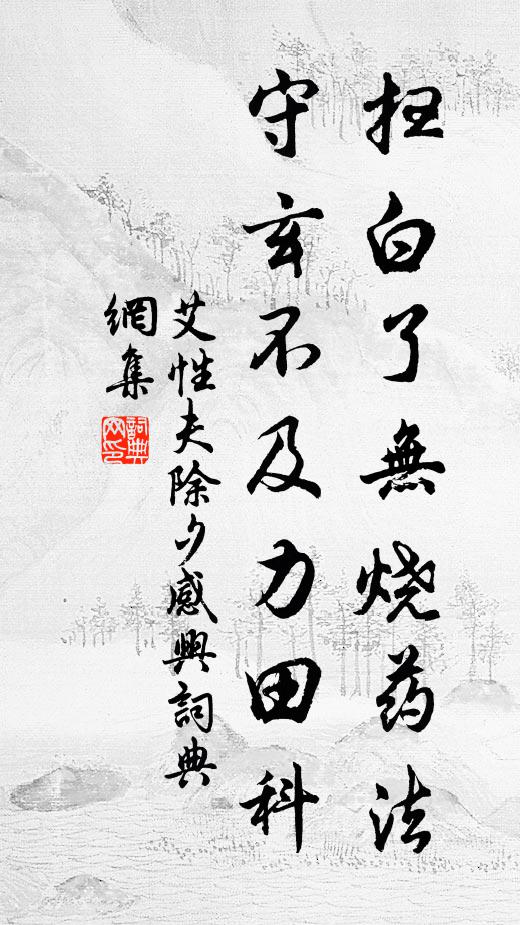 抂白了無烧药法
守玄不及力田科
艾性夫除夕感興詞典
網集
詞典
网印